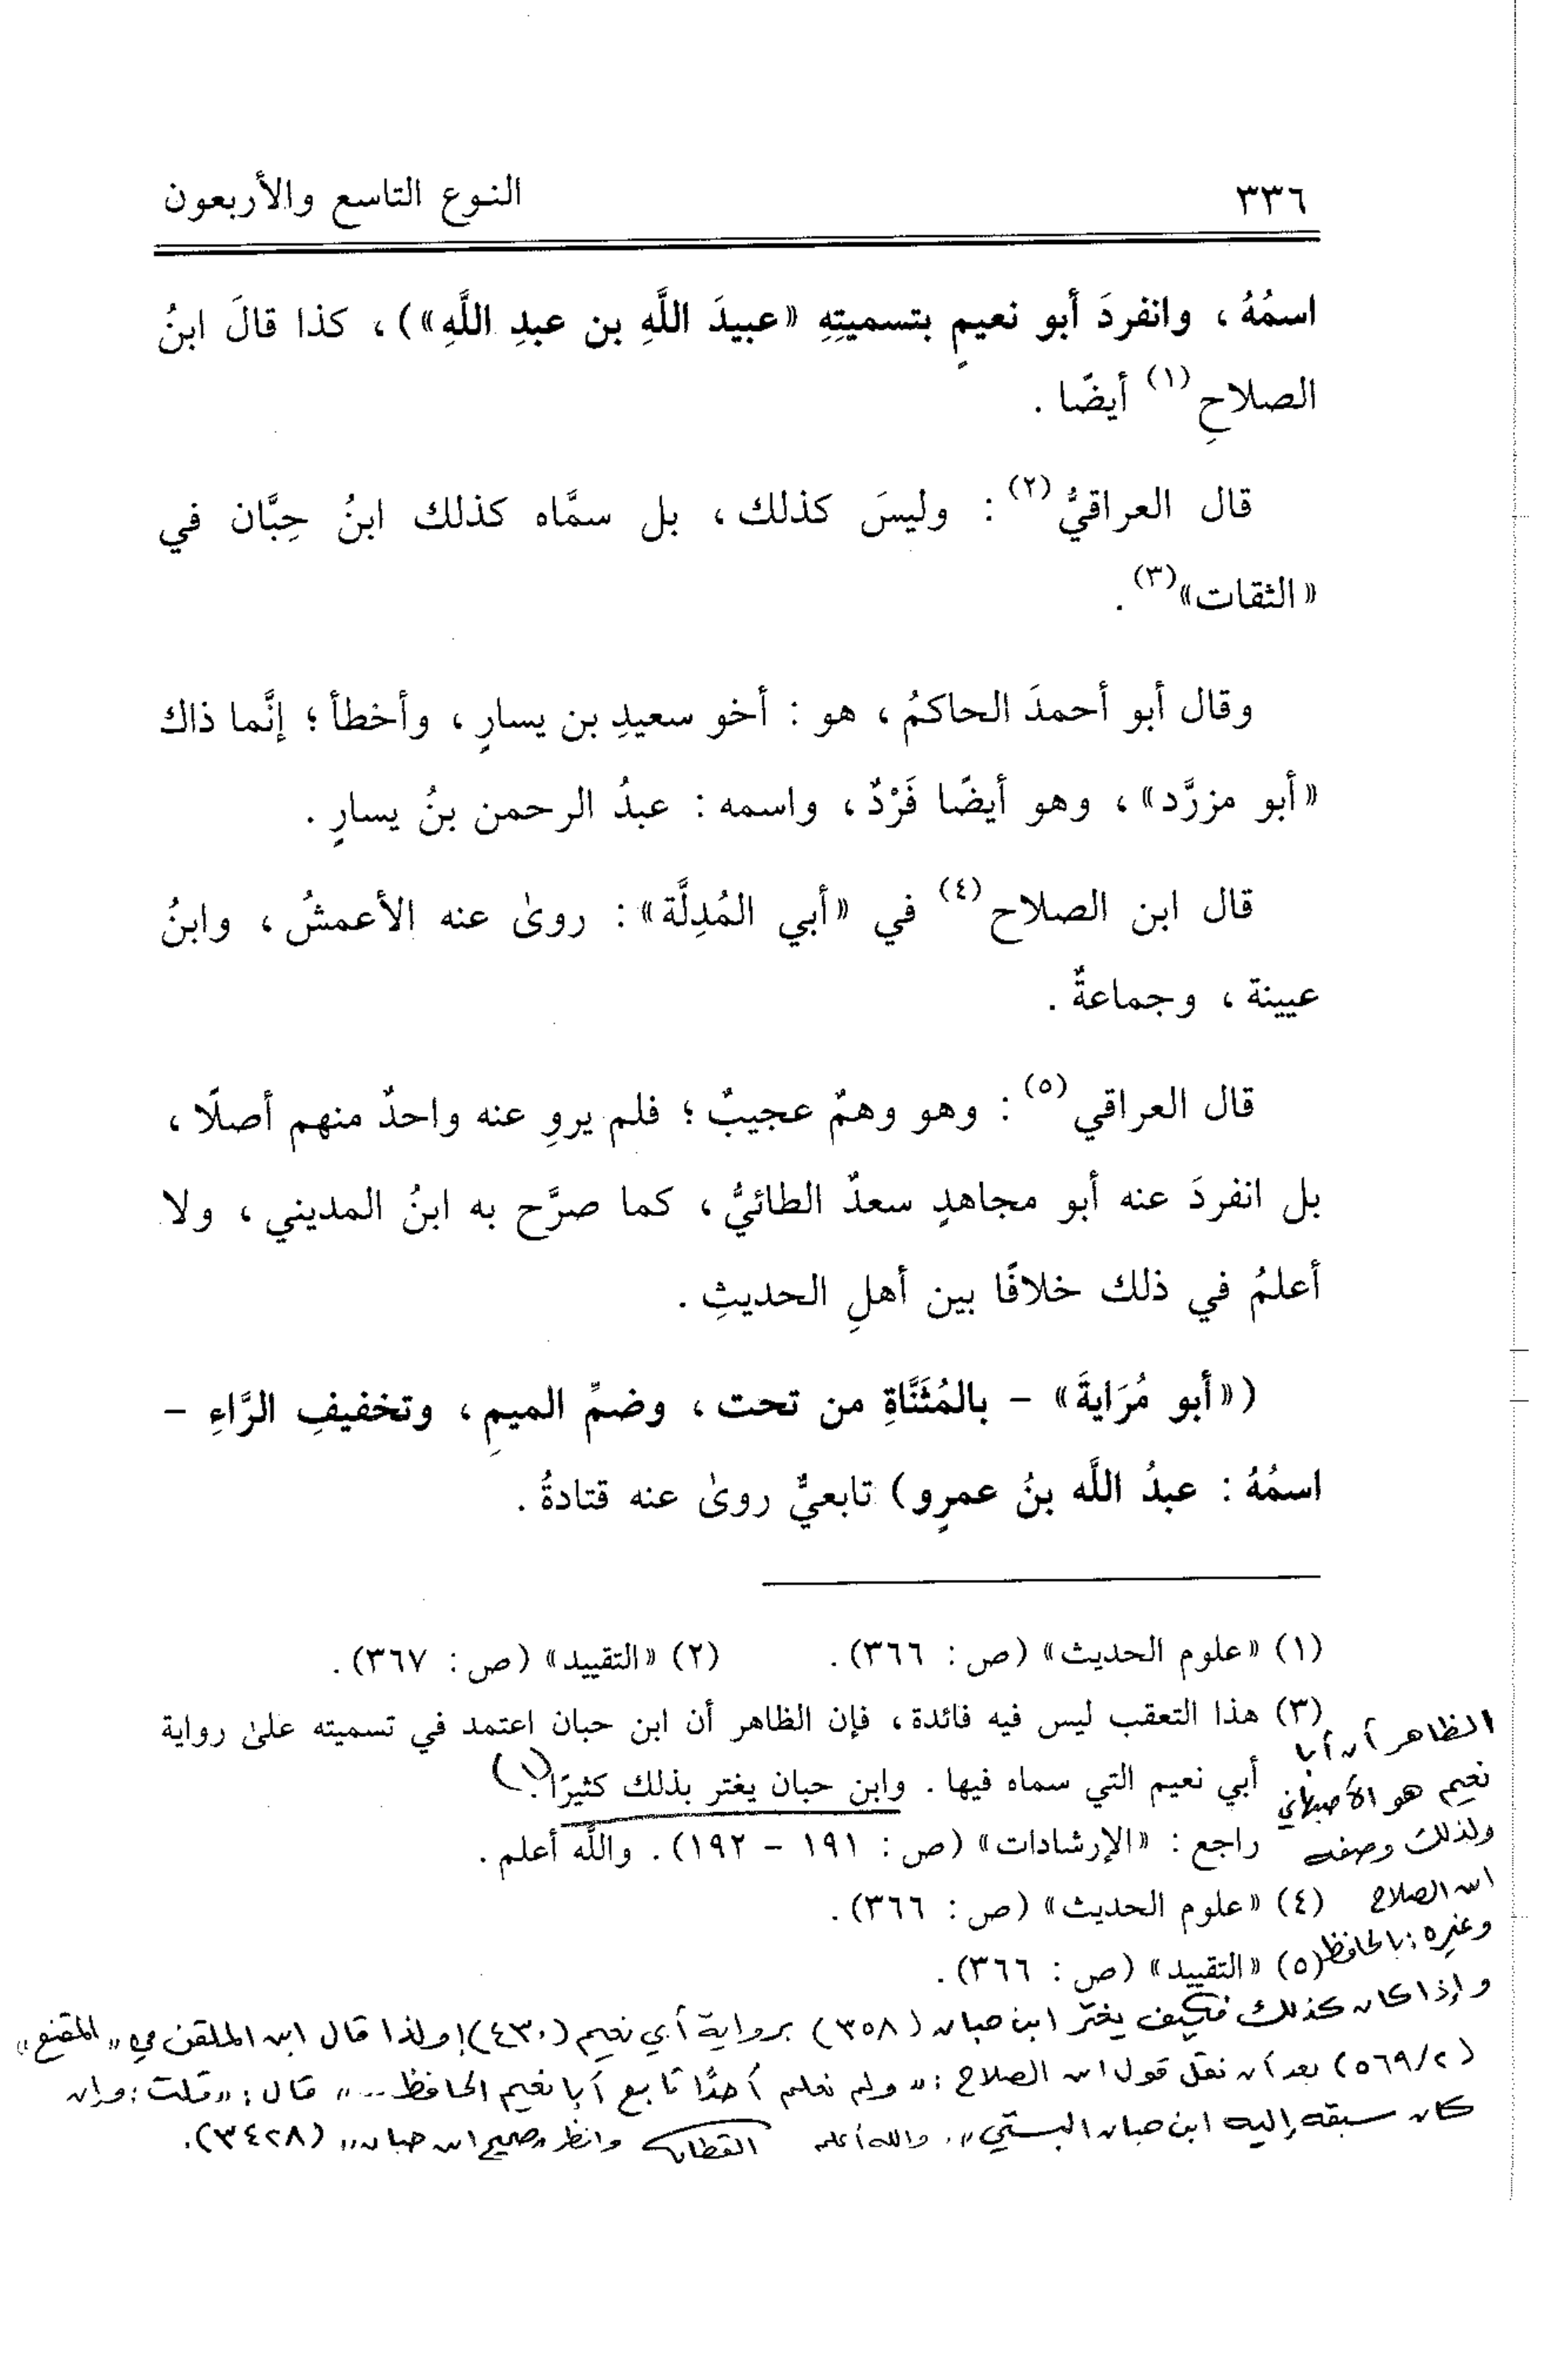 ٣٣٦ النوع التاسع والأربعون
اسمُهُ ، وانفردَ أبو نعيمٍ بتسميتِهِ «عبيدَ اللَّهِ بن عبدِ اللَّهِ») ، كذا قالَ ابنُ
الصلاحِ(١) أيضًا .
قال العراقيُّ(٢) : وليسَ كذلك ، بل سمَّاه كذلك ابنُ حِبَّان في
«الثقات»(٣) .
وقال أبو أحمدَ الحاكمُ ، هو : أخو سعيدِ بن يسارٍ ، وأخطأ ؛ إنَّما ذاك
«أبو مزرَّد» ، وهو أيضًا فَرْدٌ ، واسمه : عبدُ الرحمن بنُ يسارٍ .
قال ابن الصلاح(٤) في «أبي المُدِلَّة» : روىٰ عنه الأعمشُ ، وابنُ
عيينة ، وجماعةٌ .
قال العراقي(٥) : وهو وهمٌ عجيبٌ ؛ فلم يروِ عنه واحدٌ منهم أصلًا ،
بل انفردَ عنه أبو مجاهدٍ سعدٌ الطائيُّ ، كما صرَّح به ابنُ المديني ، ولا
أعلمُ في ذلك خلافًا بين أهلِ الحديثِ .
( «أبو مُرَايةَ» - بالمُثَنَّاةِ من تحت ، وضمِّ الميمِ ، وتخفيفِ الرَّاءِ -
اسمُهُ : عبدُ اللَّه بنُ عمرٍو) تابعيٌّ روىٰ عنه قتادةُ .
(١) «علوم الحديث» (ص : ٣٦٦) . (٢) «التقييد» (ص : ٣٦٧) .
(٣) هذا التعقب ليس فيه فائدة ، فإن الظاهر أن ابن حبان اعتمد في تسميته علىٰ رواية
أبي نعيم التي سماه فيها . وابن حبان يغتر بذلك كثيرًا .(١)
راجع : «الإرشادات» (ص : ١٩١ - ١٩٢) . واللَّه أعلم .
(٤) «علوم الحديث» (ص : ٣٦٦) .
(٥) «التقييد» (ص : ٣٦٦) .
الظاهر أن أبا
نعيم هو الأصبهاني
ولذلك وصفه
ابن الصلاح
وغيره : بالحافظ
وإذا كان كذلك فكيف يغتر ابن حبان (٣٥٨) برواية أبي نعيم (٤٣٠) ! ولذا قال ابن الملقن في «المقنع»
(٥٦٩/٢) بعد أن نقل قول ابن الصلاح : «ولم نعلم أحدًا تابع أبا نعيم الحافظ ...» قال : «قلت : وإن
كان سبقه إليه ابن حبان البستي» . والله أعلم القطان وانظر «صحيح ابن حبان» (٣٤٢٨) .